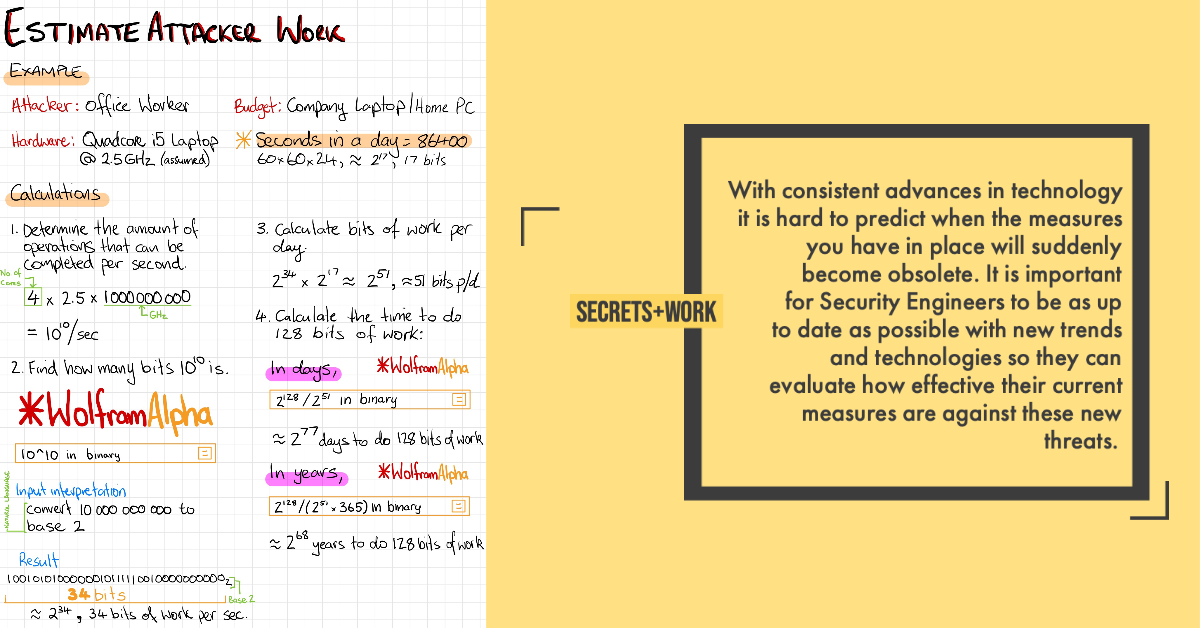 ESTIMATE ATTACKER WORK
EXAMPLE
Attacker: Office Worker
Budget: Company Laptop/Home PC
Hardware: Quadcore i5 Laptop
@ 2.5GHz (assumed)
* Seconds in a day = 86400
60×60×24, ≈ 2¹⁷, 17 bits
Calculations
1. Determine the amount of
operations that can be
completed per second.
No of
Cores
4 × 2.5 × 1000000000
GHz
= 10¹⁰/sec
2. Find how many bits 10¹⁰ is.
*WolframAlpha
10^10 in binary
Input interpretation
convert 10 000 000 000 to
base 2
Result
1001010100000010111110010000000000₂
Base 2
34 bits
≈ 2³⁴, 34 bits of work per sec.
3. Calculate bits of work per
day.
2³⁴ × 2¹⁷ ≈ 2⁵¹, ≈51 bits p/d
4. Calculate the time to do
128 bits of work:
In days,
*WolframAlpha
2¹²⁸/2⁵¹ in binary
≈ 2⁷⁷ days to do 128 bits of work
In years,
*WolframAlpha
2¹²⁸/(2⁵¹×365) in binary
≈ 2⁶⁸ years to do 128 bits of work
SECRETS+WORK
With consistent advances in technology
it is hard to predict when the measures
you have in place will suddenly
become obsolete. It is important
for Security Engineers to be as up
to date as possible with new trends
and technologies so they can
evaluate how effective their current
measures are against these new
threats.